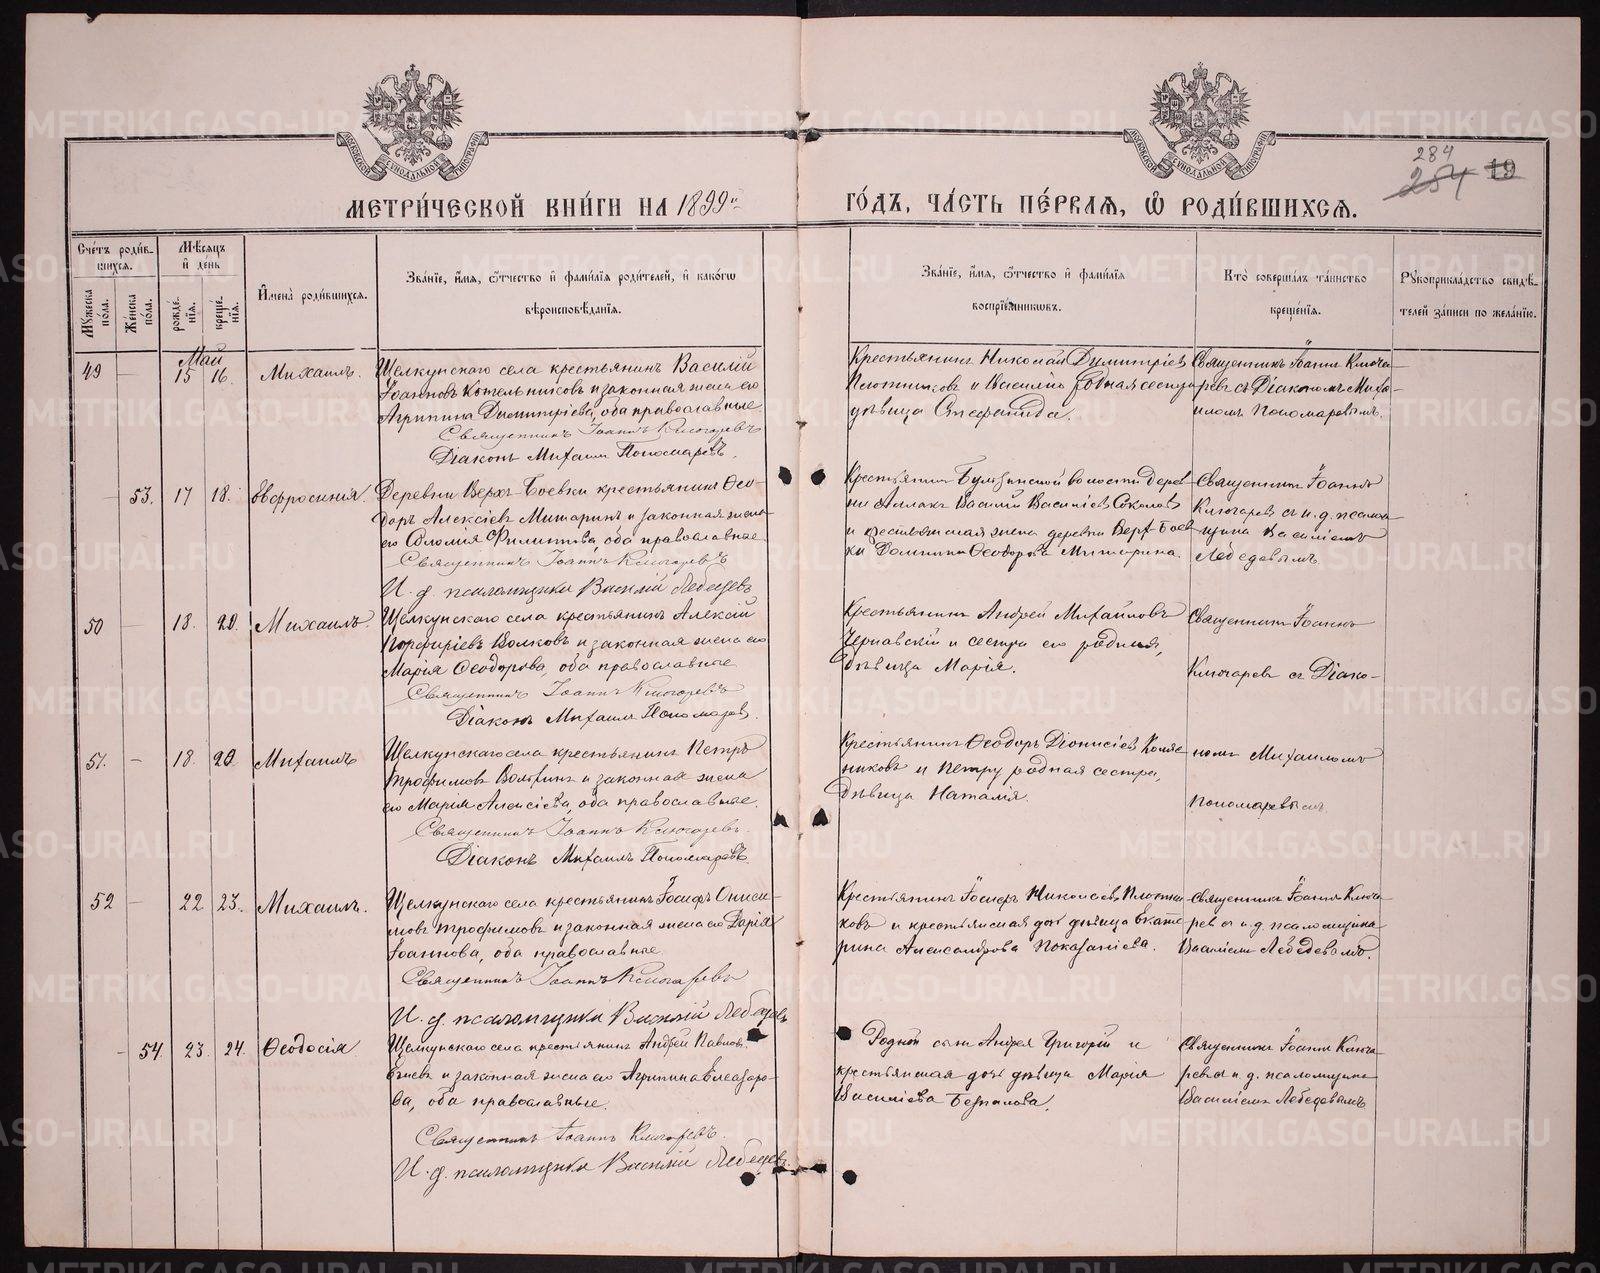 МОСКОВСКОЙ СУНОДАЛЬНОЙ ТИПОГРАФІИ
МОСКОВСКОЙ СУНОДАЛЬНОЙ ТИПОГРАФІИ
284
254 19
МЕТРИ́ЧЕСКОЙ КНИ́ГИ НА 1899й
ГО́ДЪ, ЧА́СТЬ ПЕ́РВАЯ, Ѡ РОДИ́ВШИХСЯ.
Сче́тъ роди́вшихся.
Мѣ́сяцъ и де́нь
Мꙋжеска по́ла.
Же́нска по́ла.
рожде́нїя.
креще́нїя.
Имена̀ роди́вшихся.
Зва́нїе, и́мя, ѻ́тчество и фами́лїя роди́телей, и како́гѡ
вѣроисповѣ́данїя.
Зва́нїе, и́мя, ѻ́тчество и фами́лїя
воспрїе́мниковъ.
Кто̀ соверша́лъ та́инство
креще́нїя.
Рꙋкоприкла́дство свидѣ́-
телей за́писи по жела́нїю.
Май
49 — 15 16. Михаилъ.
Щелкунскаго села крестьянинъ Василій
Іоанновъ Котельниковъ и законная жена его
Агрипина Димитріева, оба православные.
Священникъ Іоаннъ Ключаревъ
Діаконъ Михаилъ Пономаревъ.
Крестьянинъ Николай Димитріевъ
Плотниковъ и Василію родная сестра
дѣвица Стефанида.
Священникъ Іоаннъ Ключа-
ревъ съ Діакономъ Миха-
иломъ Пономаревымъ.
— 53. 17 18. Евфросинія.
Деревни Верхъ-Боевки крестьянинъ Ѳео-
доръ Алексіевъ Митаринъ и законная жена
его Соломія Филиппова, оба православные
Священникъ Іоаннъ Ключаревъ
И. д. псаломщика Василій Лебедевъ
Крестьянинъ волости дерев
ни Василій Василіевъ Соколовъ
и крестьянская жена деревни Верх-Боев-
ки Ѳеодорова Митарина.
Священникъ Іоаннъ
Ключаревъ съ и. д. псалом-
щика Василіемъ
Лебедевымъ
50 — 18. 20. Михаилъ.
Щелкунскаго села крестьянинъ Алексій
Порфиріевъ Волковъ и законная жена его
Марія Ѳеодорова, оба православные
Священникъ Іоаннъ Ключаревъ
Діаконъ Михаилъ Пономаревъ.
Крестьянинъ Андрей Михаиловъ
Чернавскій и сестра его родная,
дѣвица Марія.
Священникъ Іоаннъ
Ключаревъ съ Діако-
51. — 18. 20. Михаилъ
Щелкунскаго села крестьянинъ Петръ
Трофимовъ и законная жена
его Марія Алексіева, оба православные.
Священникъ Іоаннъ Ключаревъ.
Діаконъ Михаилъ Пономаревъ
Крестьянинъ Ѳеодоръ Діонисіевъ
и Петру родная сестра,
дѣвица Наталія.
номъ Михаиломъ
Пономаревымъ
52 — 22 23. Михаилъ.
Щелкунскаго села крестьянинъ Іосифъ Ониси-
мовъ Трофимовъ и законная жена его Дарія
Іоаннова, оба православные.
Священникъ Іоаннъ Ключаревъ
И. д. псаломщика Василій Лебедевъ
Крестьянинъ Іосифъ Николаевъ Плотни-
ковъ и крестьянская дочь дѣвица Екате-
рина Александрова
Священникъ Іоаннъ Ключа-
ревъ съ и. д. псаломщика
Василіемъ Лебедевымъ.
— 54. 23. 24. Ѳеодосія
Щелкунскаго села крестьянинъ Андрей Павловъ
и законная жена его Агрипина Елеазаро-
ва, оба православные.
Священникъ Іоаннъ Ключаревъ.
И. д. псаломщика Василій Лебедевъ.
Родной сынъ Андрея Григорій и
крестьянская дочь дѣвица Марія
Василіева
Священникъ Іоаннъ Ключа-
ревъ и. д. псаломщика
Василіемъ Лебедевымъ
METRIKI.GASO-URAL.RU